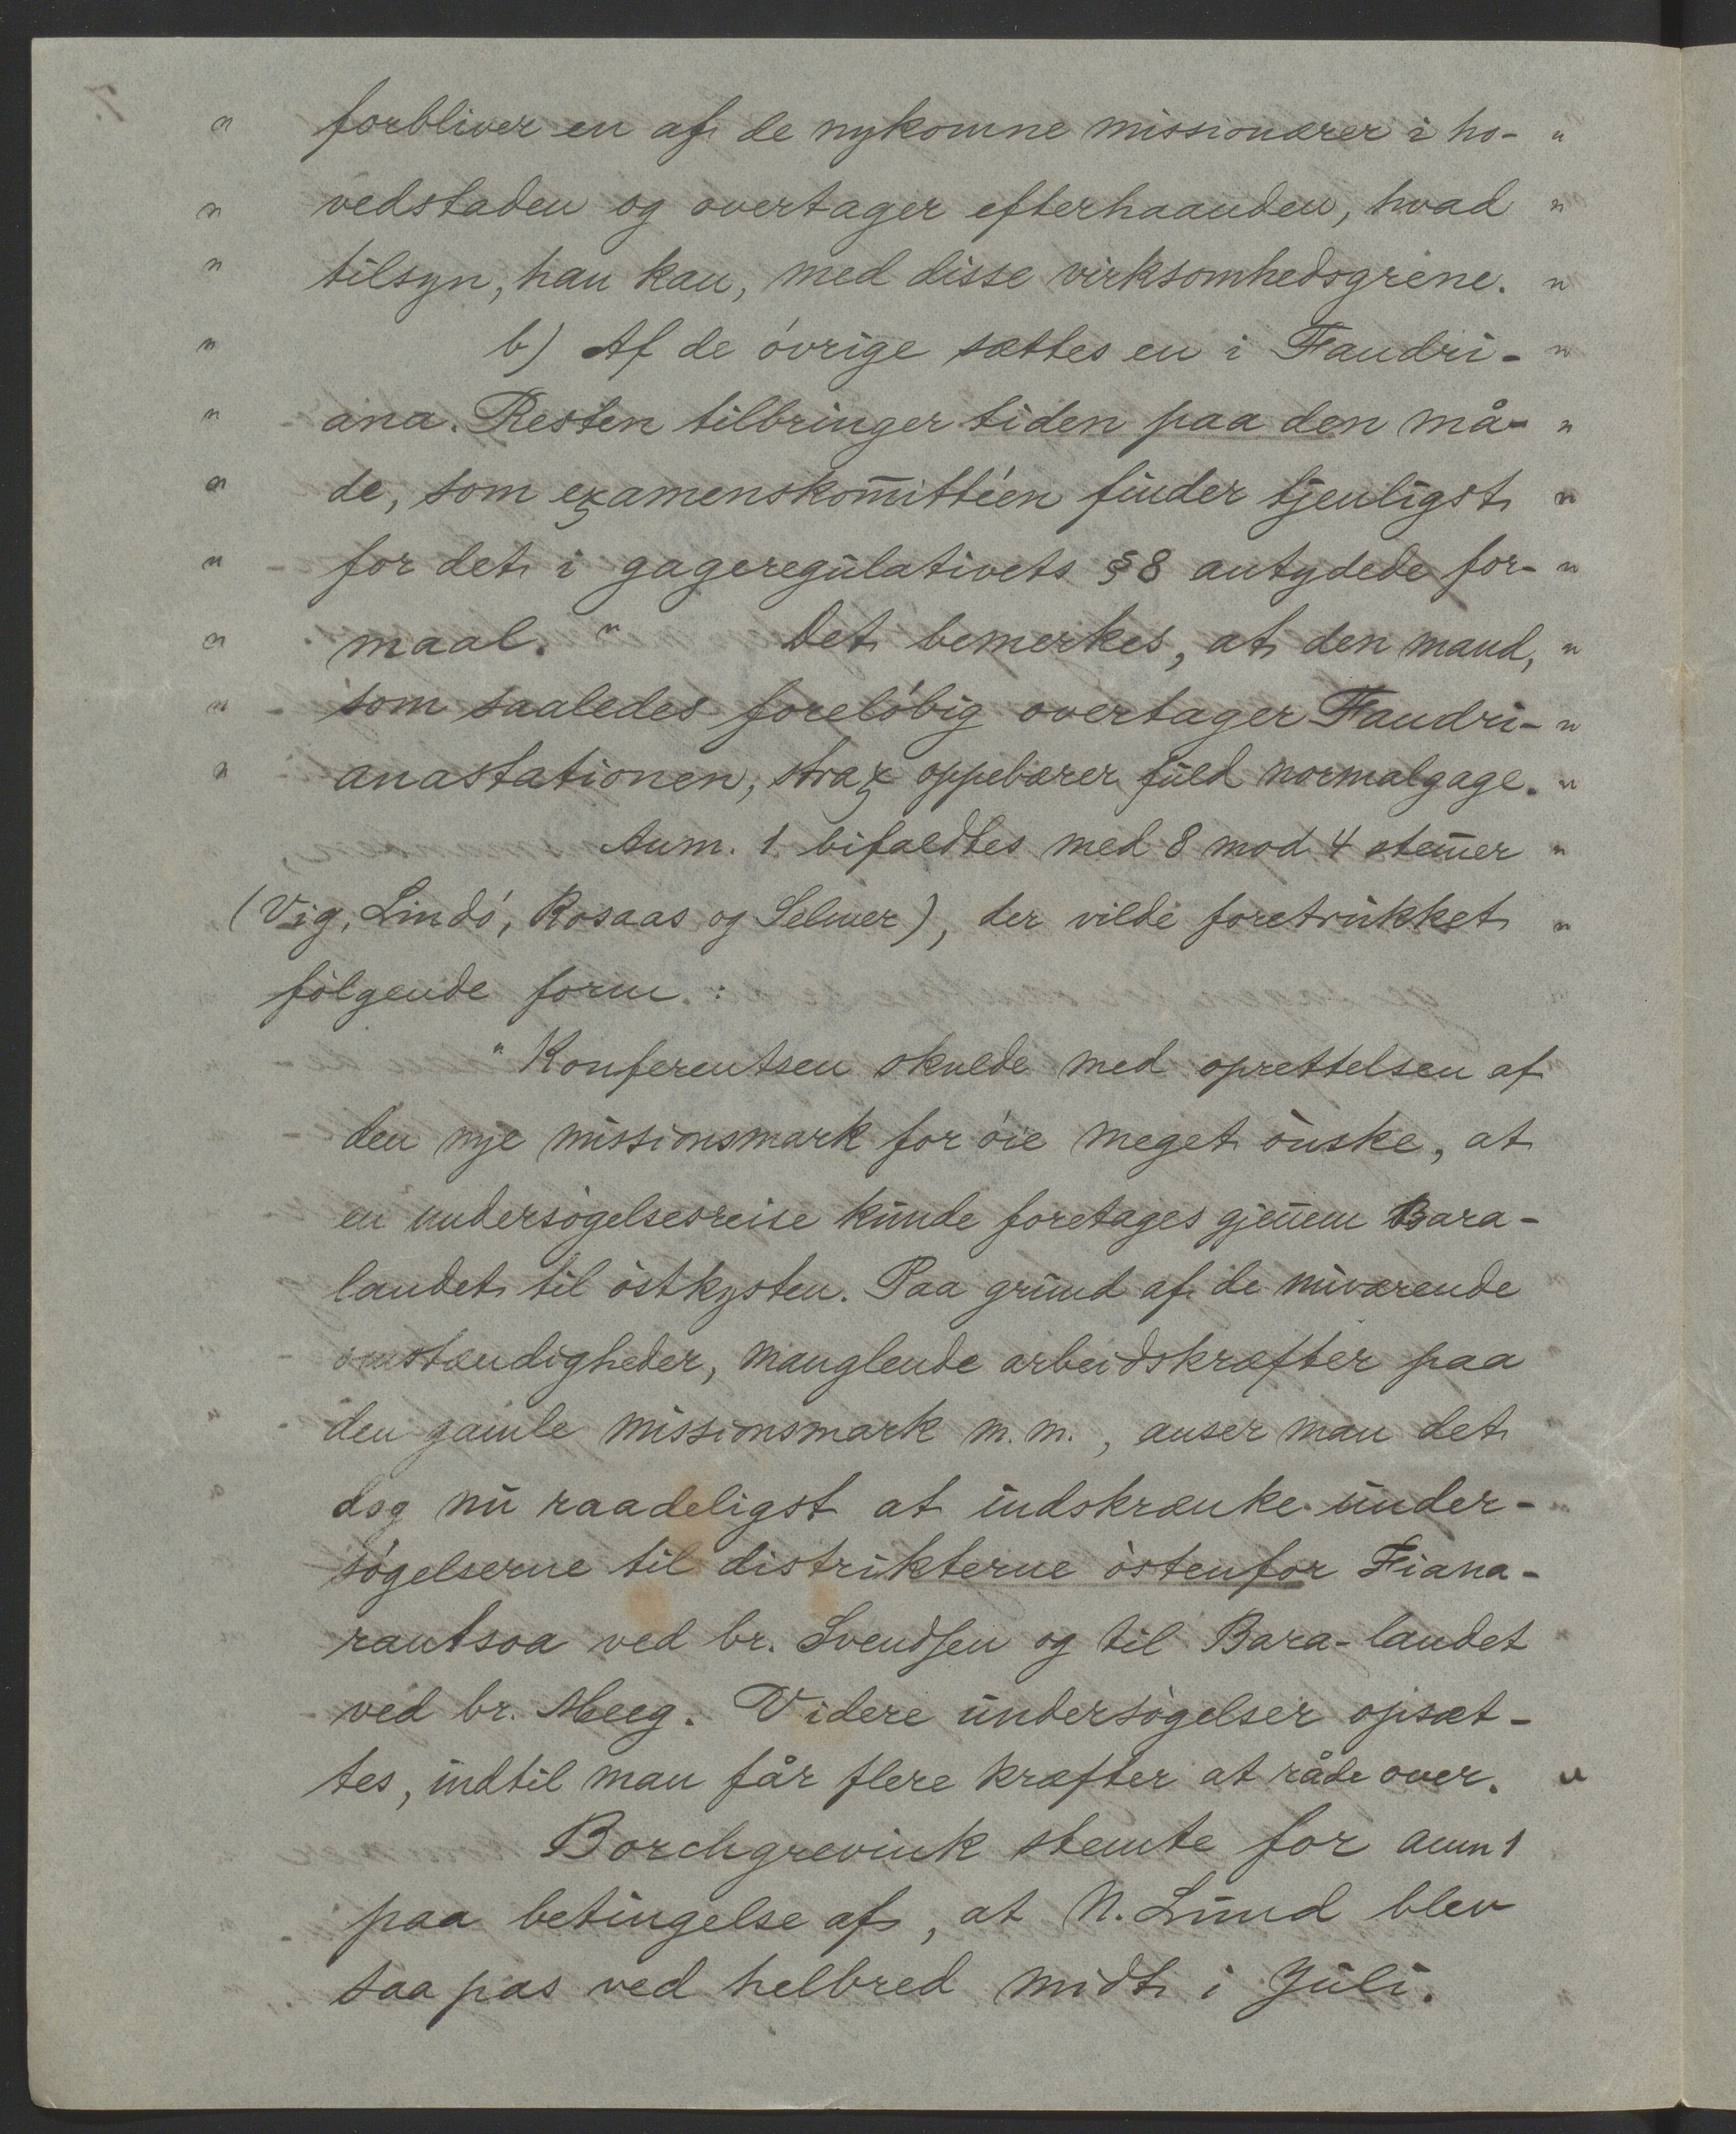 " forbliver en af de nykomne missionærer i ho- "
" vedstaden og overtager efterhaanden, hvad "
" tilsyn, han kan, med disse virksomhedsgrene. "
" b) Af de óvrige sættes en i Fandri- "
" ana. Resten tilbringer tiden paa den må- "
" de, som examenskom̄ittéen finder tjenligst "
" for det i gageregulativets §8 antydede for- "
" maal. " Det bemerkes, at den mand, "
" som saaledes foreló́big overtager Fandri- "
" anastationen, strax oppebærer fuld normalgage. "
Anm. 1 bifaldtes med 8 mod 4 stem̄er "
(Vig, Lindó, Rosaas og Selmer), der vilde foretrukket "
fólgende form:
" Konferentsen skulde med oprettelsen af
den nye missionsmark for óie meget ónske, at
en undersógelsesreise kunde foretages gjen̄em Bara-
landet til óstkysten. Paa grund af de nuværende
omstændigheder, manglende arbeidskræfter paa
den gamle missionsmark m. m., anser man det
dog nu raadeligst at indskrænke under-
sógelserne til distrikterne óstenfor Fiana-
rantsoa ved br. Svendsen og til Bara-landet
ved br. Meeg. Videre undersógelser opsæt-
tes, indtil man får flere kræfter at råde over. "
Borchgrevink stemte for anm 1
paa betingelse af, at N. Lund blev
saa pas ved helbred midt i Juli.